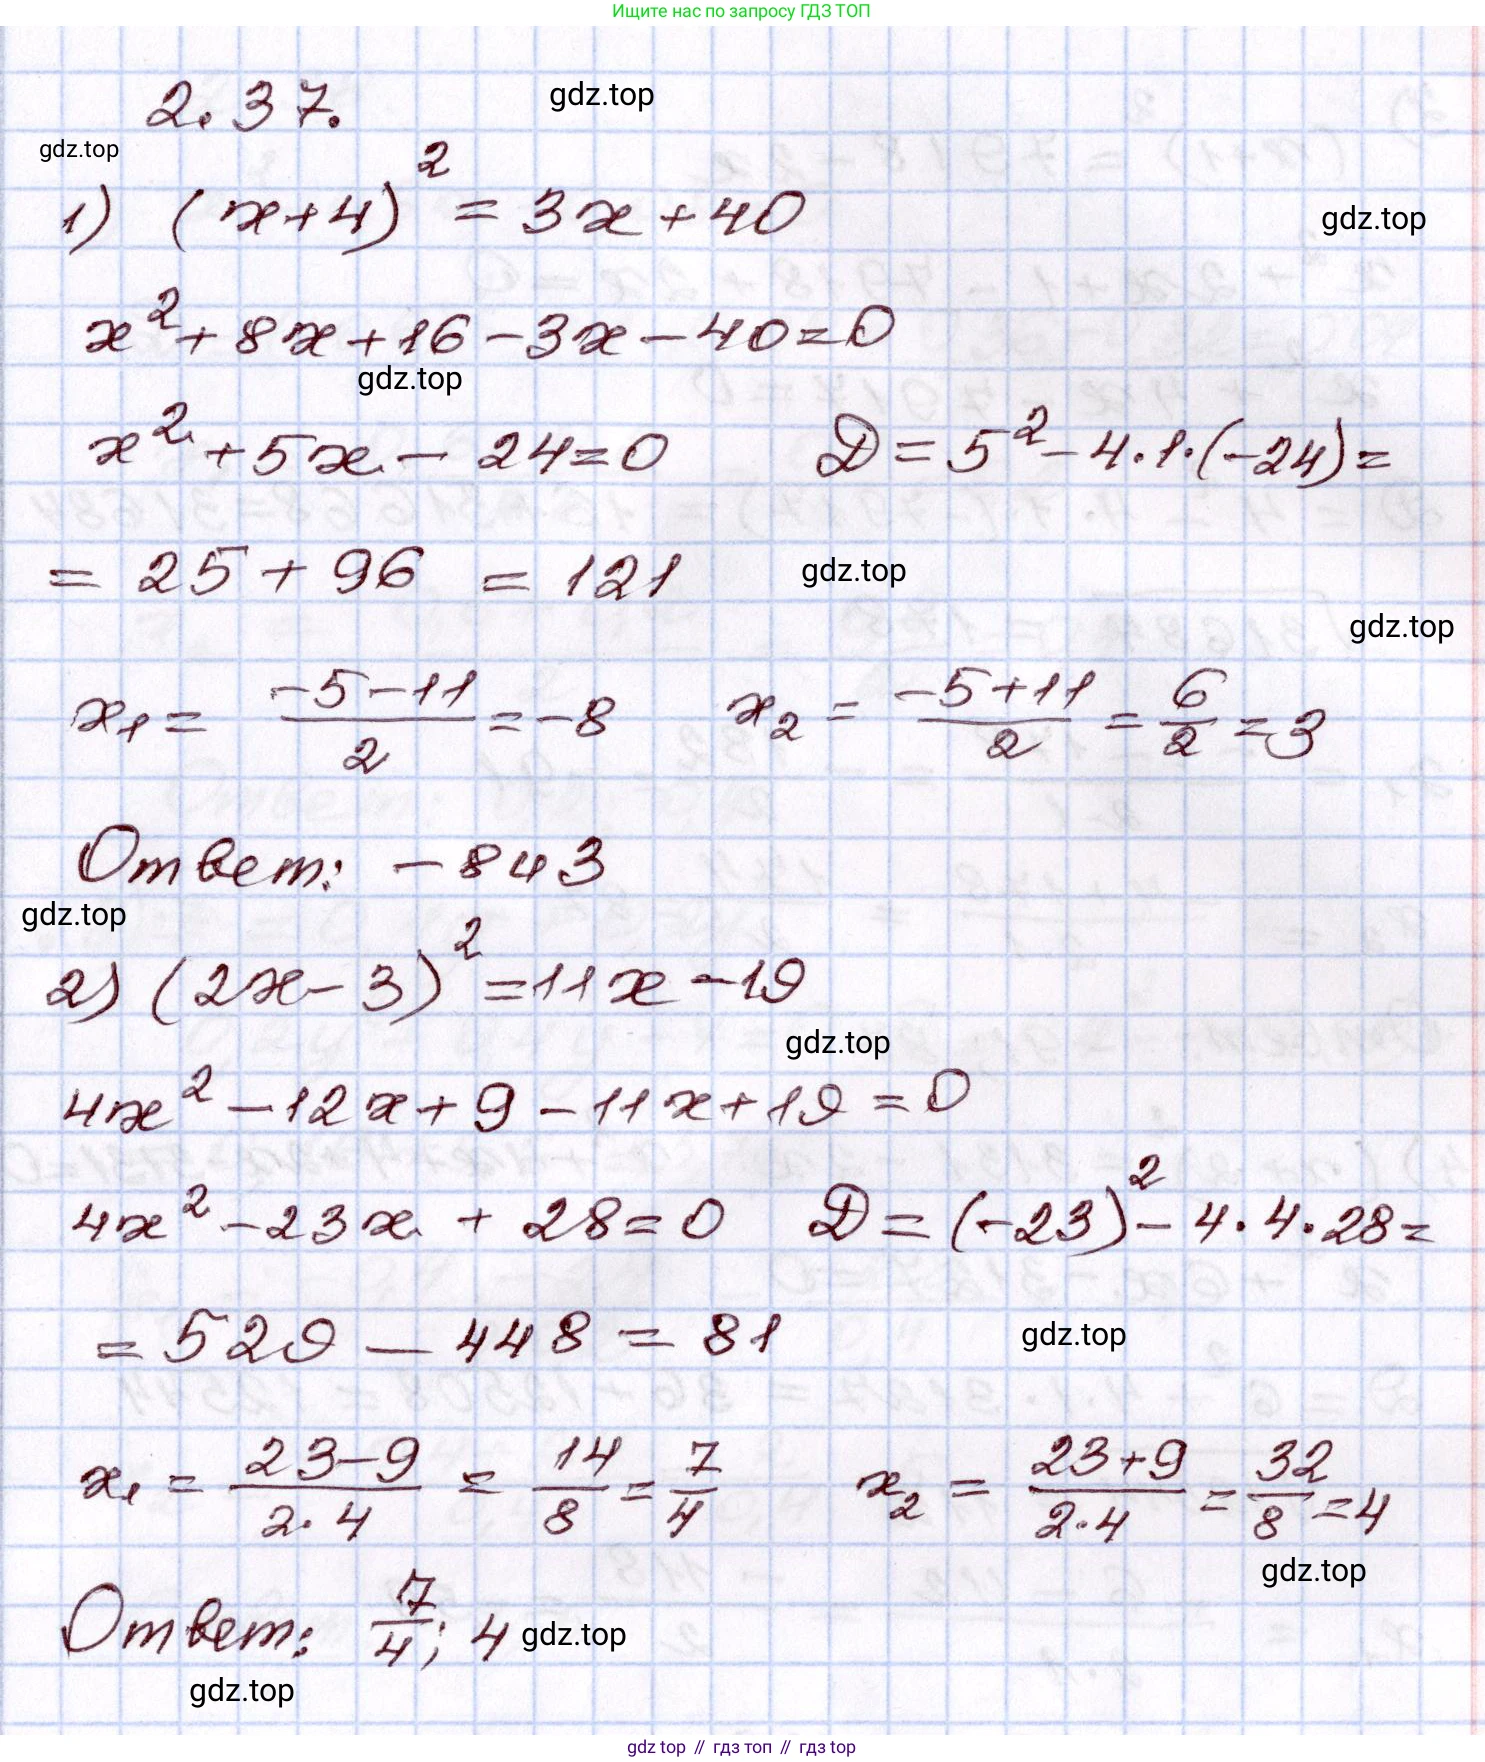 Ищите нас по запросу ГДЗ ТОП
2.37.
gdz.top
gdz.top
1) (x+4)² = 3x+40
gdz.top
x²+8x+16-3x-40=0
gdz.top
x²+5x-24=0 D=5²-4·1·(-24)=
= 25+96 = 121
gdz.top
gdz.top
x₁ = (-5-11)/2 = -8 x₂ = (-5+11)/2 = 6/2 = 3
Ответ: -8 и 3
gdz.top
2) (2x-3)² = 11x-19
gdz.top
4x²-12x+9-11x+19=0
4x²-23x+28=0 D=(-23)²-4·4·28=
= 529-448 = 81
gdz.top
x₁ = (23-9)/(2·4) = 14/8 = 7/4 x₂ = (23+9)/(2·4) = 32/8 = 4
gdz.top
Ответ: 7/4; 4
gdz.top
gdz.top
gdz top // гдз топ // гдз top